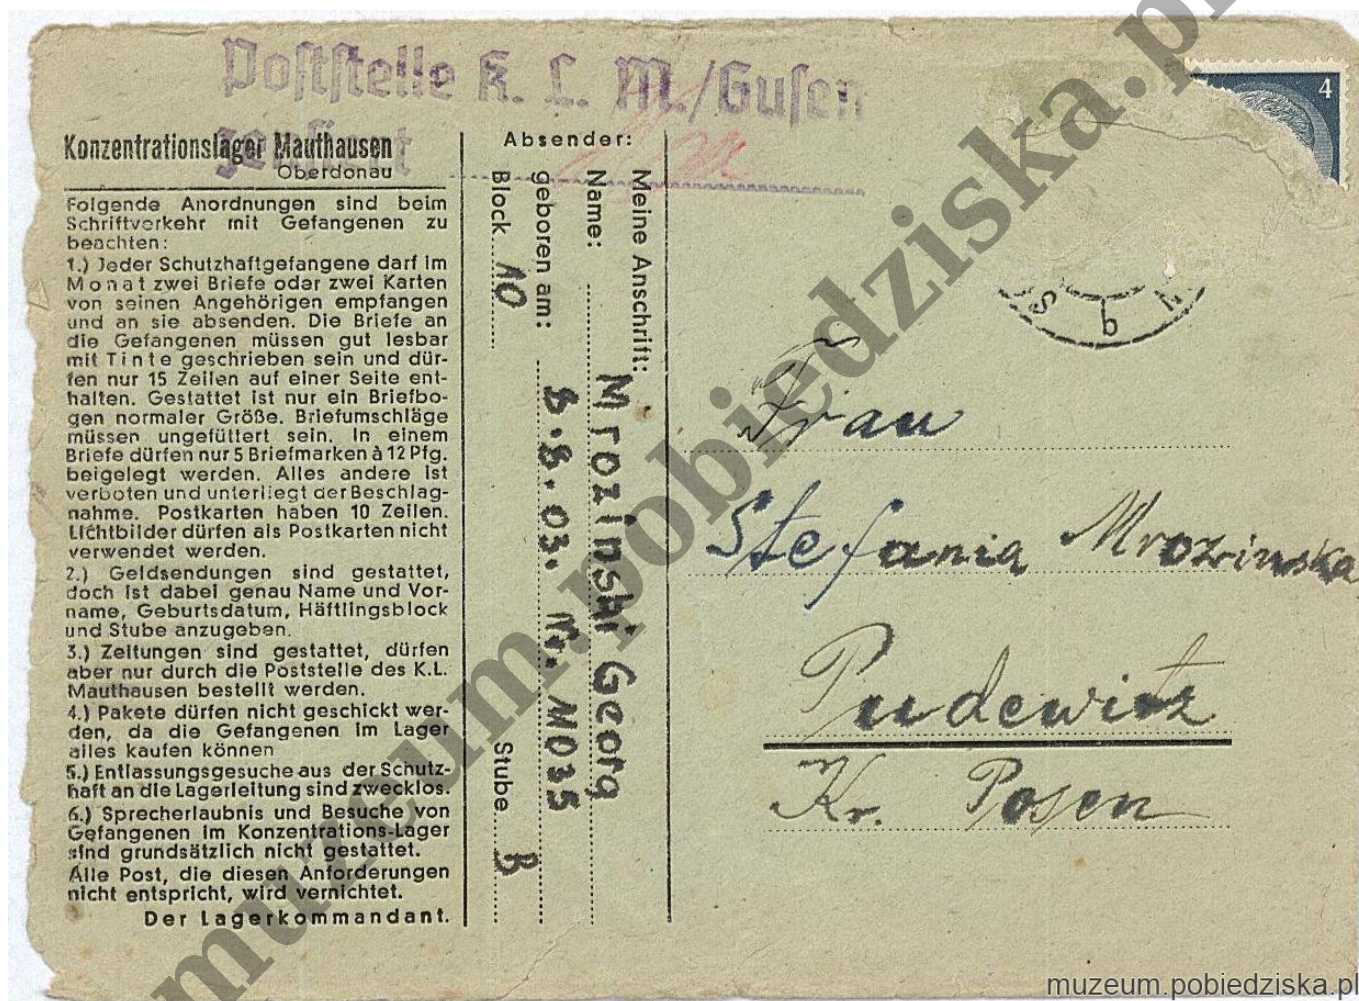 Poststelle K. L. M./Gusen
zensiert
4
Konzentrationslager Mauthausen
Oberdonau
Folgende Anordnungen sind beim
Schriftverkehr mit Gefangenen zu
beachten:
1.) Jeder Schutzhaftgefangene darf im
Monat zwei Briefe oder zwei Karten
von seinen Angehörigen empfangen
und an sie absenden. Die Briefe an
die Gefangenen müssen gut lesbar
mit Tinte geschrieben sein und dür-
fen nur 15 Zeilen auf einer Seite ent-
halten. Gestattet ist nur ein Briefbo-
gen normaler Größe. Briefumschläge
müssen ungefüttert sein. In einem
Briefe dürfen nur 5 Briefmarken à 12 Pfg.
beigelegt werden. Alles andere ist
verboten und unterliegt der Beschlag-
nahme. Postkarten haben 10 Zeilen.
Lichtbilder dürfen als Postkarten nicht
verwendet werden.
2.) Geldsendungen sind gestattet,
doch ist dabei genau Name und Vor-
name, Geburtsdatum, Häftlingsblock
und Stube anzugeben.
3.) Zeitungen sind gestattet, dürfen
aber nur durch die Poststelle des K.L.
Mauthausen bestellt werden.
4.) Pakete dürfen nicht geschickt wer-
den, da die Gefangenen im Lager
alles kaufen können
5.) Entlassungsgesuche aus der Schutz-
haft an die Lagerleitung sind zwecklos.
6.) Sprecherlaubnis und Besuche von
Gefangenen im Konzentrations-Lager
sind grundsätzlich nicht gestattet.
Alle Post, die diesen Anforderungen
nicht entspricht, wird vernichtet.
Der Lagerkommandant.
Absender:
Meine Anschrift:
Name: Mrozinski Georg
geboren am: 8.8.03. Nr. 11035
Block 10 Stube B
Frau
Stefania Mrozinska
Pudewitz
Kr. Posen
muzeum.pobiedziska.pl
muzeum.pobiedziska.pl